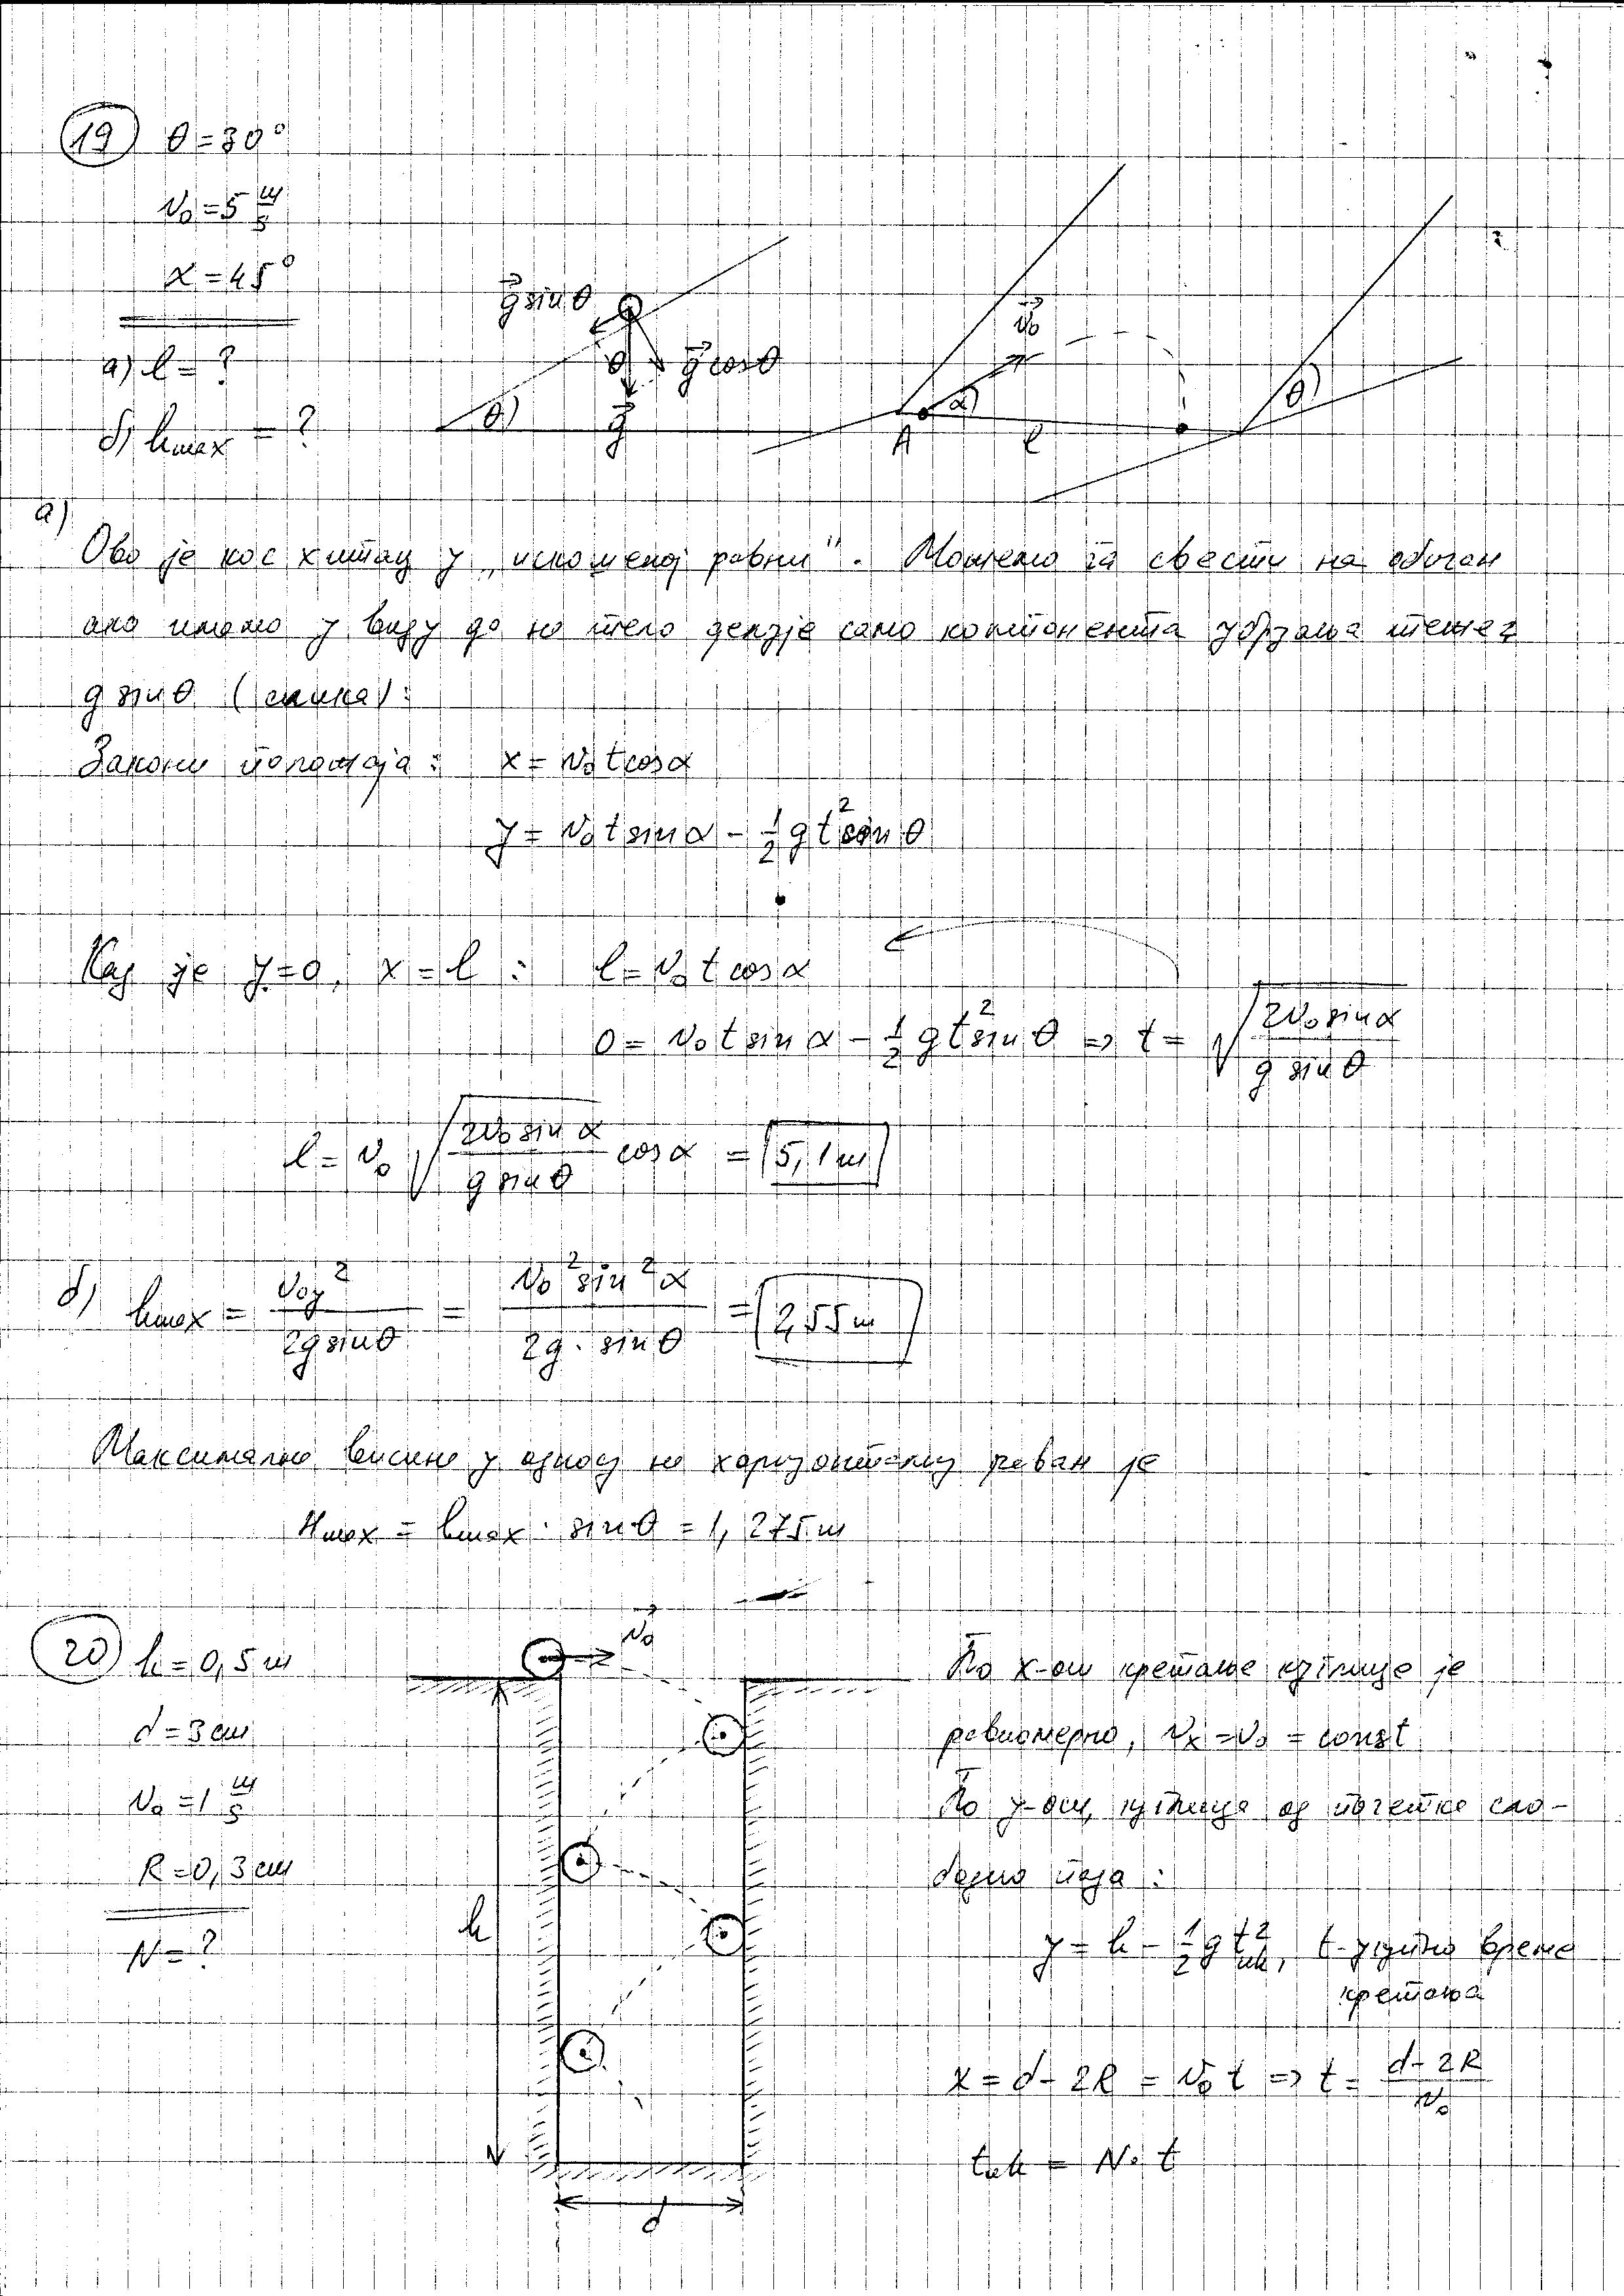 19 θ = 30°
v₀ = 5 m/s
α = 45°
a) l = ?
б) hmax = ?
g⃗ sin θ
θ
g⃗ cos θ
θ
g⃗
v⃗₀
α
A
l
θ
a)
Ово је кос хитац у „искошеној равни". Можемо га свести на обичан
ако имамо у виду да на тело делује само компонента убрзања теже
g sin θ (слика):
Закони положаја: x = v₀ t cos α
y = v₀ t sin α − 1/2 g t² sin θ
Кад је y = 0, x = l : l = v₀ t cos α
0 = v₀ t sin α − 1/2 g t² sin θ ⇒ t = √(2v₀ sin α / g sin θ)
l = v₀ √(2v₀ sin α / g sin θ) cos α = 5,1 m
б) hmax = v₀y² / 2g sin θ = v₀² sin² α / 2g · sin θ = 2,55 m
Максимална висина у односу на хоризонталну раван је
Hmax = hmax · sin θ = 1,275 m
20 h = 0,5 m
d = 3 cm
v₀ = 1 m/s
R = 0,3 cm
N = ?
v⃗₀
h
d
По x-оси кретање куглице је
равномерно, vx = v₀ = const
По y-оси, куглица од почетка сло-
бодно пада :
y = h − 1/2 g t²uk, t-укупно време
кретања
x = d − 2R = v₀ t ⇒ t = (d − 2R) / v₀
tuk = N · t